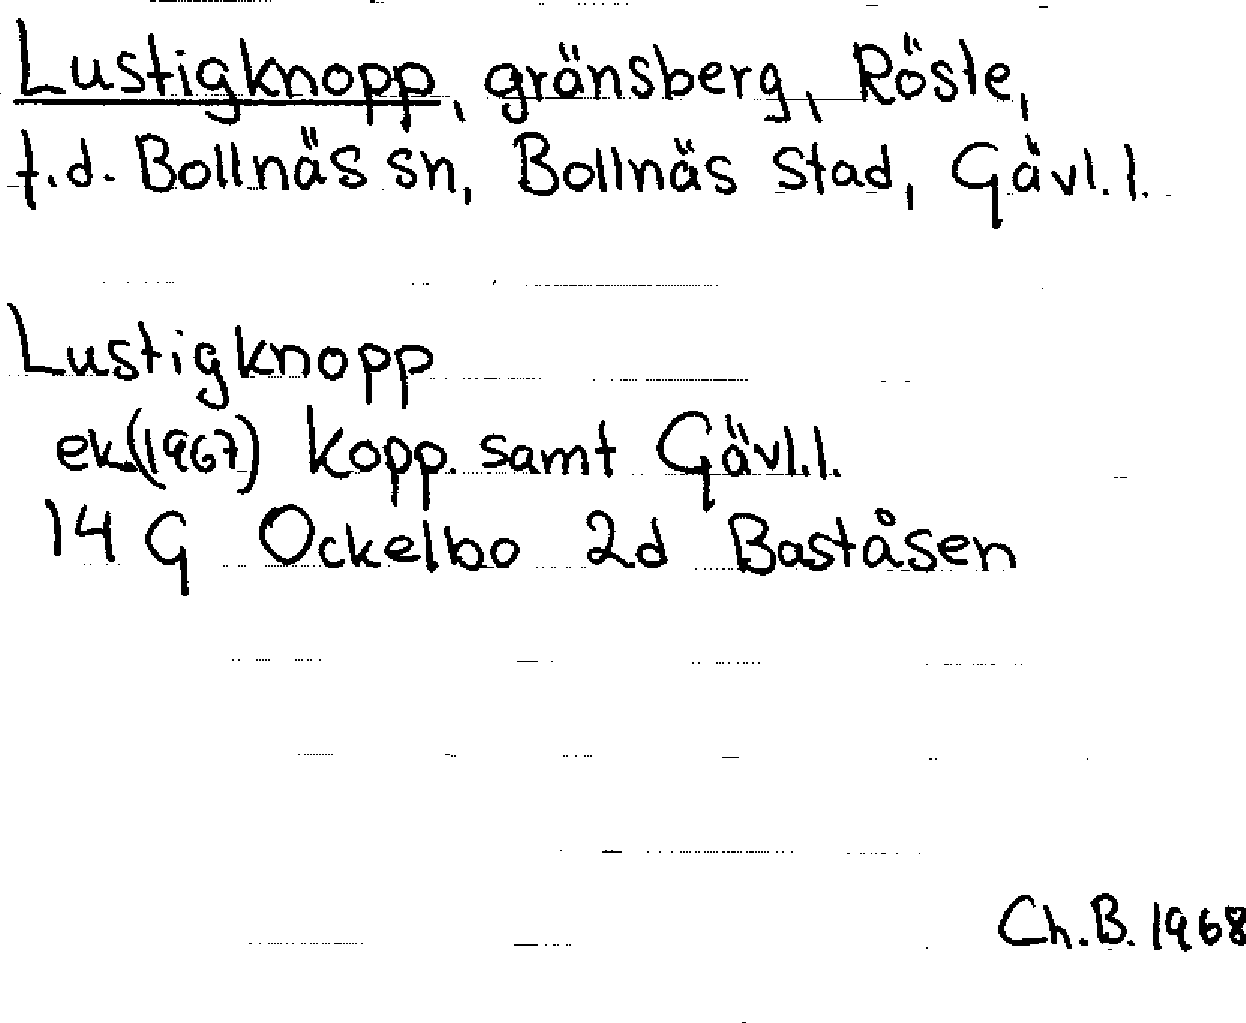 Lustigknopp, gränsberg, Röste,
f.d. Bollnäs sn, Bollnäs stad, Gävl.l.
Lustigknopp
ek(1967) Kopp. samt Gävl.l.
14 G Ockelbo 2d Baståsen
Ch.B. 1968